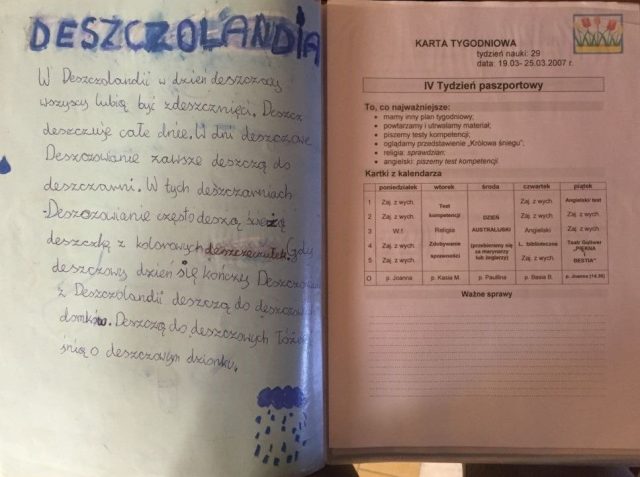 DESZCZOLANDIA
W Deszczolandii w dzień deszczowy
wszyscy lubią być zdeszcznięci. Deszcz
deszczuje całe dnie. W dni deszczowe
Deszczowanie zawsze deszczą do
deszczarni. W tych deszczarniach
Deszczowianie często deszczą świeżą
deszczką z kolorowych Gdy
deszczowy dzień się kończy
z Deszczolandii deszczą do deszczowych
domków. Deszczą do deszczowych łóżek
śnią o deszczowym dzionku.
KARTA TYGODNIOWA
tydzień nauki: 29
data: 19.03- 25.03.2007 r.
IV Tydzień paszportowy
To, co najważniejsze:
• mamy inny plan tygodniowy;
• powtarzamy i utrwalamy materiał;
• piszemy testy kompetencji;
• oglądamy przedstawienie „Królowa śniegu";
• religia: sprawdzian;
• angielski: piszemy test kompetencji.
Kartki z kalendarza
poniedziałek wtorek środa czwartek piątek
1 Zaj. z wych. Test kompetencji DZIEŃ AUSTRALIJSKI (przebieramy się za marynarzy lub żeglarzy) Zaj. z wych. Angielski/ test
2 Zaj. z wych. Zaj. z wych. Zaj. z wych.
3 W.f. Religia Angielski Zaj. z wych.
4 Zaj. z wych. Zdobywanie sprawności L. biblioteczna Teatr Guliwer „PIĘKNA I BESTIA"
5 Zaj. z wych. Zaj. z wych.
O p. Joanna p. Kasia M. p. Paulina p. Basia B. p. Joanna (14.30)
Ważne sprawy